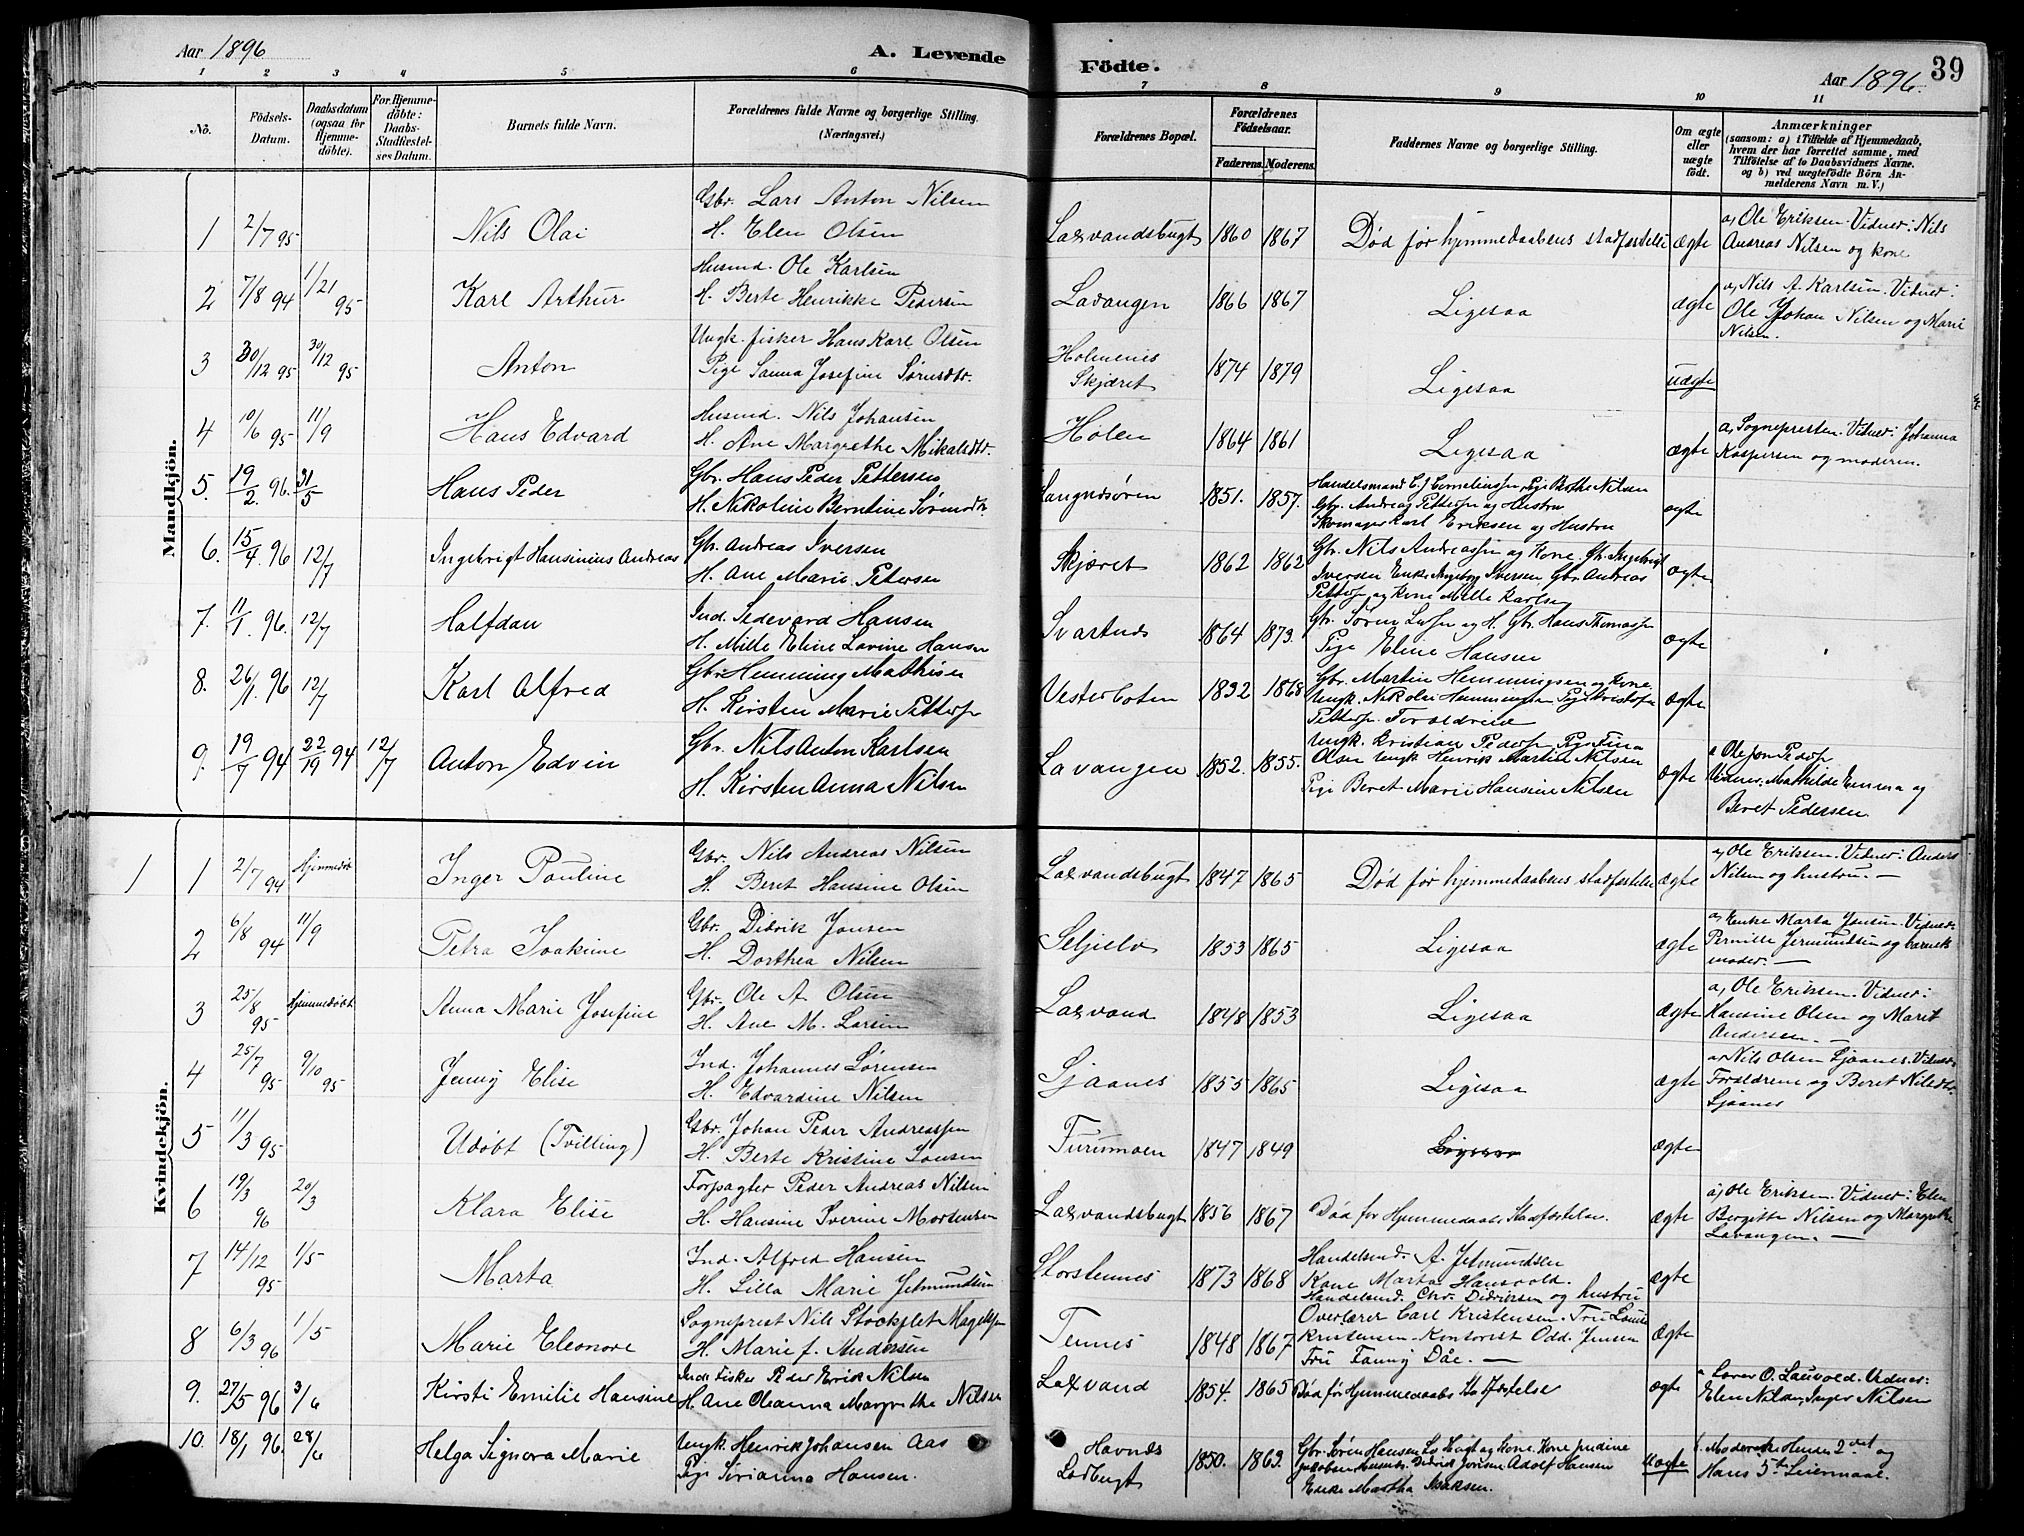 Aar 1896
A. Levende
Födte.
Aar 1896.
39
1 2 3 4 5 6 7 8 9 10 11
No.
Födsels-
Datum.
Daabsdatum
(ogsaa for
Hjemme-
döbte).
For Hjemme-
döbte:
Daabs-
Stadfæstel-
ses Datum.
Barnets fulde Navn.
Forældrenes fulde Navne og borgerlige Stilling.
(Næringsvei.)
Forældrenes Bopæl.
Forældrenes
Födselsaar.
Faderens. Moderens.
Faddernes Navne og borgerlige Stilling.
Om ægte
eller
uægte
födt.
Anmærkninger
(saasom: a) i Tilfælde af Hjemmedaab,
hvem der har forrettet samme, med
Tilföielse af to Daabsvidners Navne.
og b) ved uægtefödte Börn An-
melderens Navn m. V.)
Mandkjön.
1 2/7 95 Nils Olai
Gbr. Lars Anton Nilsen
H. Elen Olsen
Laxvandsbugt 1860 1867 Død før hjemmedaabens stadfæstelse ægte
a, Ole Eriksen. Vidner: Nils
Andreas Nilsen og kone
2 7/8 94 1/21 95 Karl Arthur
Husmd. Ole Karlsen
H. Berte Henrikke Pedersen
Lavangen 1866 1867 Ligesaa ægte
a, Nils A. Karlsen. Vidner:
Ole Johan Nilsen og Marie
Nilsen.
3 30/12 95 30/12 95 Anton
Ungk. fisker Hans Karl Olsen
Pige Sanna Josefine Sørensdtr.
Holmenes
Skjæret 1874 1879 Ligesaa uægte
4 10/6 95 11/9 Hans Edvard
Husmd. Nils Johansen
H. Ane Margrethe Mikalsdtr.
Holen 1864 1861 Ligesaa ægte
a, Sognepresten. Vidner: Johanna
Kaspersen og moderen.
5. 19/2. 96. 31/5 Hans Peder
Gbr. Hans Peder Pettersen
H. Nikoline Berntine Sørensdtr.
1851. 1857.
Handelsmand C. J. Corneliussen, Pige Berthe Nilsen
Gbr. Andreas Pettersen og Hustru
Skomager Karl Eriksen og Hustru
ægte
6. 15/4. 96 12/7 Ingebrigt Hansinius Andreas
Gbr. Andreas Iversen
H. Ane Marie Petersen
Skjæret 1862 1862
Gbr. Nils Andreassen og Kone. Gbr. Ingebrigt
Iversen Enke Ingeborg Iversen, Gbr. Andreas
Petters. og Kone Milla Karlsen
ægte
7. 11/1. 96. 12/7 Halfdan
Ind. Sedevard Hansen
H. Mille Eline Lovine Hansen
Svartnes 1864 1873.
Gbr. Søren Larsen og H. Gbr. Hans Thomassen
Pige Eline Hansen
ægte
8. 26/1. 96 12/7 Karl Alfred
Gbr. Henning Mathisen
H. Kirsten Marie Petters.
Vesterboten 1832 1868
Gbr. Martin Henningsen og Kone
Ungk. Nikolai Henningsen Pige Kristofa
Petters. Forældrene
ægte
9. 19/7 94 22/19 94 12/7 Anton Edvin
Gbr. Nils Anton Karlsen
H. Kirsten Anna Nilsen
Lavangen 1852. 1855.
Ungk. Kristian Peders. Pige Fina
Olsen Ungk Henrik Martin Nilsen
Pige Beret Marie Hansine Nilsen
ægte
Vidner: Mathilde Emma og
Beret Pedersen
Kvindekjön.
1 1 2/7 94 Hjemmedøbt Inger Pauline
Gbr. Nils Andreas Nilsen
H. Beret Hansine Olsen
Laxvandsbugt 1847 1865 Død før hjemmedaabens stadfæstelse ægte
a, Ole Eriksen. Vidner: Anders
Nilsen og hustru. —
2 6/8 94 11/9 Petra Joakime
Gbr. Didrik Jonsen
H. Dorthea Nilsen
Seljelv 1853 1865 Ligesaa ægte
a, Enke Marta Jonsen. Vidner:
Pernille Jermundsen og barnets
moder. —
3 25/8 95 Hjemmedøbt Anna Marie Josefine
Gbr. Ole A. Olsen
H. Ane M. Larsen
Laxvand 1848 1853 Ligesaa ægte
a, Ole Eriksen. Vidner:
Hansine Olsen og Marit
Andersen. —
4 25/7 95 9/10 95 Jenny Elise
Ind. Johannes Sørensen
H. Edvardine Nilsen
Sjaanes 1855 1865 Ligesaa ægte
a, Nils Olsen Sjaanes. Vidner:
Forældrene og Beret Nilsdtr.
Sjaanes
5 11/3 95 Udøbt (Tvilling)
Gbr. Johan Peder Andreassen
H. Berte Kristine Jonsen
Furumoen 1847 1849 Ligesaa ægte
6 19/3 96 20/3 Klara Elise
Forpagter Peder Andreas Nilsen
H. Hansine Sverine Mortensen
Laxvandsbugt 1856 1867 Død før Hjemmedaabs Stadfæstelse. ægte
a, Ole Eriksen. Vidner: Elen
Bergitte Nilsen og Margrethe
Lavangen. —
7 14/12 95 1/5 Marta
Ind. Alfred Hansen
H. Lilla Marie Jetmundsen
Storstennes 1873 1868
Handelsmd. A. Jetmundsen
Kone Marta Hansvold.
Handelsmd. Chr. Didriksen og hustru
ægte
8 6/3 96 1/5 Marie Eleonore
Sogneprest Nils Stockflet Magelssen
H. Marie f. Andersen
Tennes 1848 1867
Overlærer Carl Kristensen. Fru Louise
Kristensen. Kontorist Odd. Jensen
Fru Fanny Dåe. —
ægte
9. 27/5 96 3/6 Kirsti Emilie Hansine
Ind. Fisker Peder Erik Nilsen
H. Ane Oleanna Margrethe Nilsen
Laxvand 1854. 1865 Død før Hjemmedaabs Stadfæstelse ægte
Elen Nilsen, Inger Nilsen
10. 18/1 96. 28/6 Helga Signora Marie
Ungk. Henrik Johansen Aas
Pige Sirianna Hansen.
Havnes
Laxbugt 1850. 1863.
Gbr. Søren Hansen
Didrik Jonsen Adolf Hansen
Enke Martha Isaksen.
uægte
Moderens Hendes 2det og
Hans 5te Leiermaal.